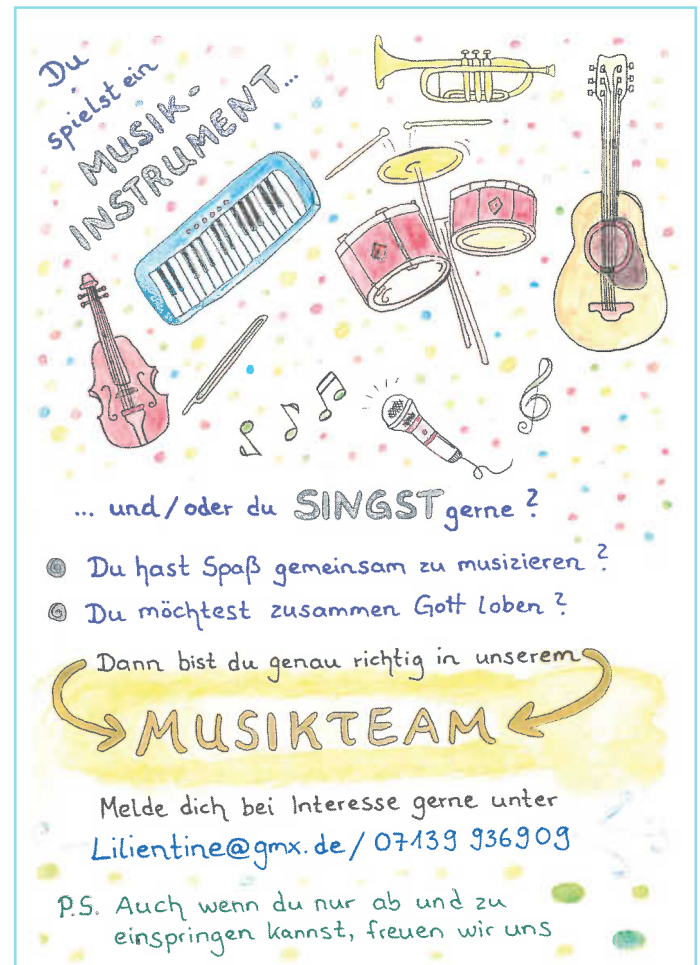 Du
spielst ein
MUSIK-
INSTRUMENT...
... und/oder du SINGST gerne?
Du hast Spaß gemeinsam zu musizieren?
Du möchtest zusammen Gott loben?
Dann bist du genau richtig in unserem
MUSIKTEAM
Melde dich bei Interesse gerne unter
Lilientine@gmx.de / 07139 936909
P.S. Auch wenn du nur ab und zu
einspringen kannst, freuen wir uns